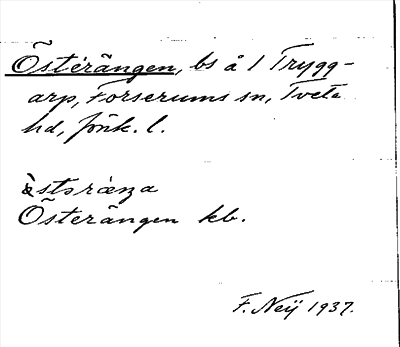 Österängen, bs å 1 Trygg-
arp, Forserums sn, Tveta
hd, Jönk. l.
Österängen kb.
F. Neij 1937.